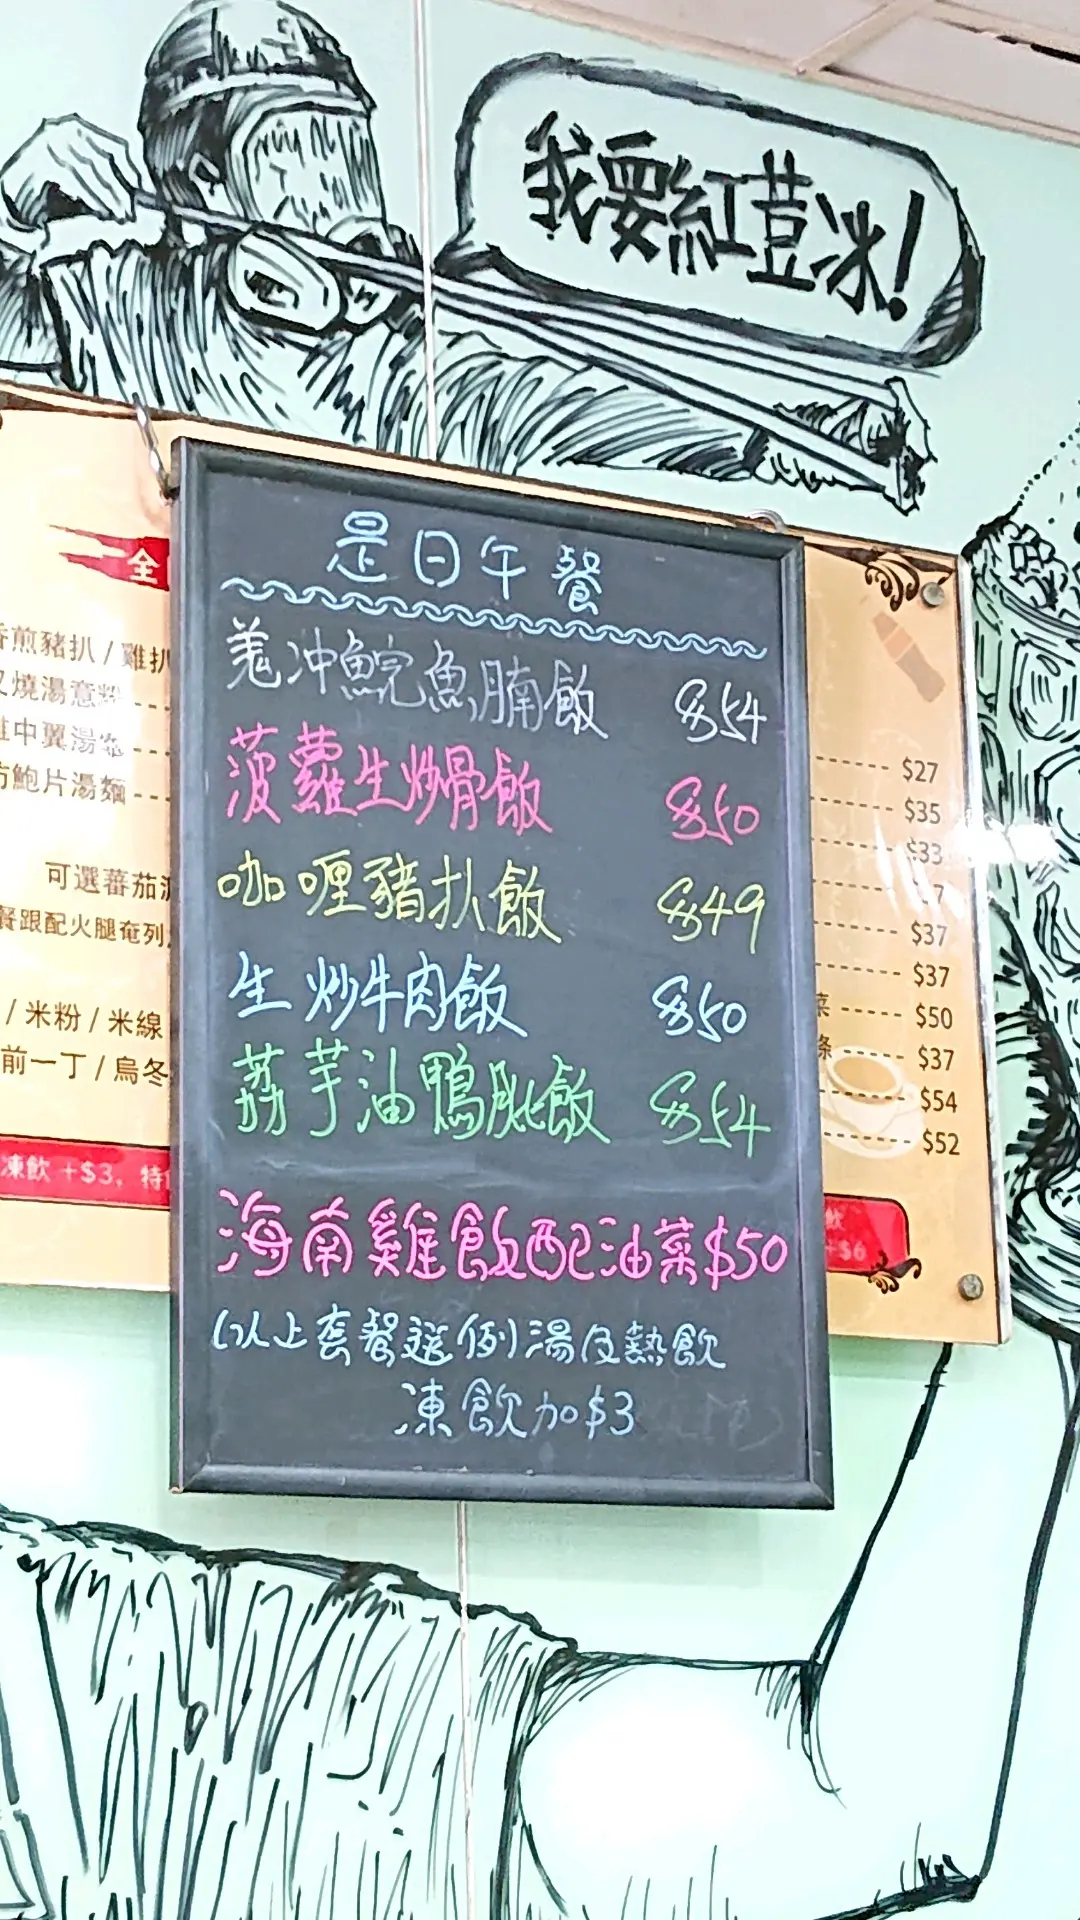 我要紅荳冰!
是日午餐
羗冲鯇魚腩飯 $54
菠蘿生炒骨飯 $50
咖喱豬扒飯 $49
生炒牛肉飯 $50
荔芋油鴨肶飯 $54
海南雞飯配油菜$50
(以上套餐送例)湯及熱飲
凍飲加$3
全
香煎豬扒 / 雞扒
叉燒湯意粉
雞中翼湯
鮑片湯麵
可選蕃茄湯
餐跟配火腿奄列
/ 米粉 / 米線
前一丁 / 烏冬
凍飲 +$3, 特
$27
$35
$33
$37
$37
菜 $50
條 $37
$54
$52
飲
+$6